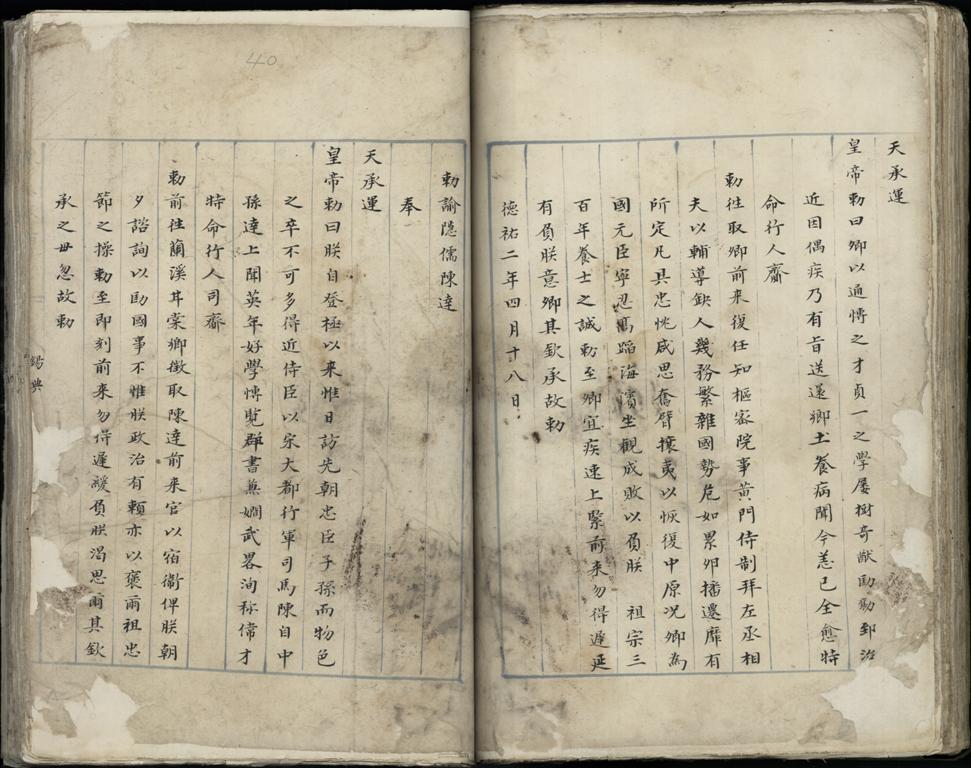 天承運
皇帝勅曰卿以通博之才貞一之學屡樹奇猷勛勷郅治
近因偶疾乃有旨送還卿土養病聞今恙已全愈特
命行人齎
勅徃取卿前来復任知樞密院事黄門侍制拜左丞相
夫以輔導鈌人幾務繁雜國勢危如累卵播遷靡有
所定凡具忠忱咸思奮臂攘夷以恢復中原况卿為
國元臣寧忍高蹈海濱坐觀成敗以負朕 祖宗三
百年養士之誠勅至卿宜疾速上緊前来勿得遲延
有負朕意卿其欽承故勅
德祐二年四月十八日
勅諭隱儒陳達
奉
天承運
皇帝勅曰朕自登極以来惟日訪先朝忠臣子孫而物色
之卒不可多得近侍臣以宋大都行軍司馬陳自中
孫達上聞英年好學博覧群書兼嫺武畧洵称偉才
特命行人司齎
勅前徃蘭溪井棠鄉徴取陳達前来官以宿衞俾朕朝
夕諮詢以勛國事不惟朕政治有賴亦以褒爾祖忠
節之操勅至即刻前来勿得遲緩負朕渴思爾其欽
承之毋忽故勅
錫典
40